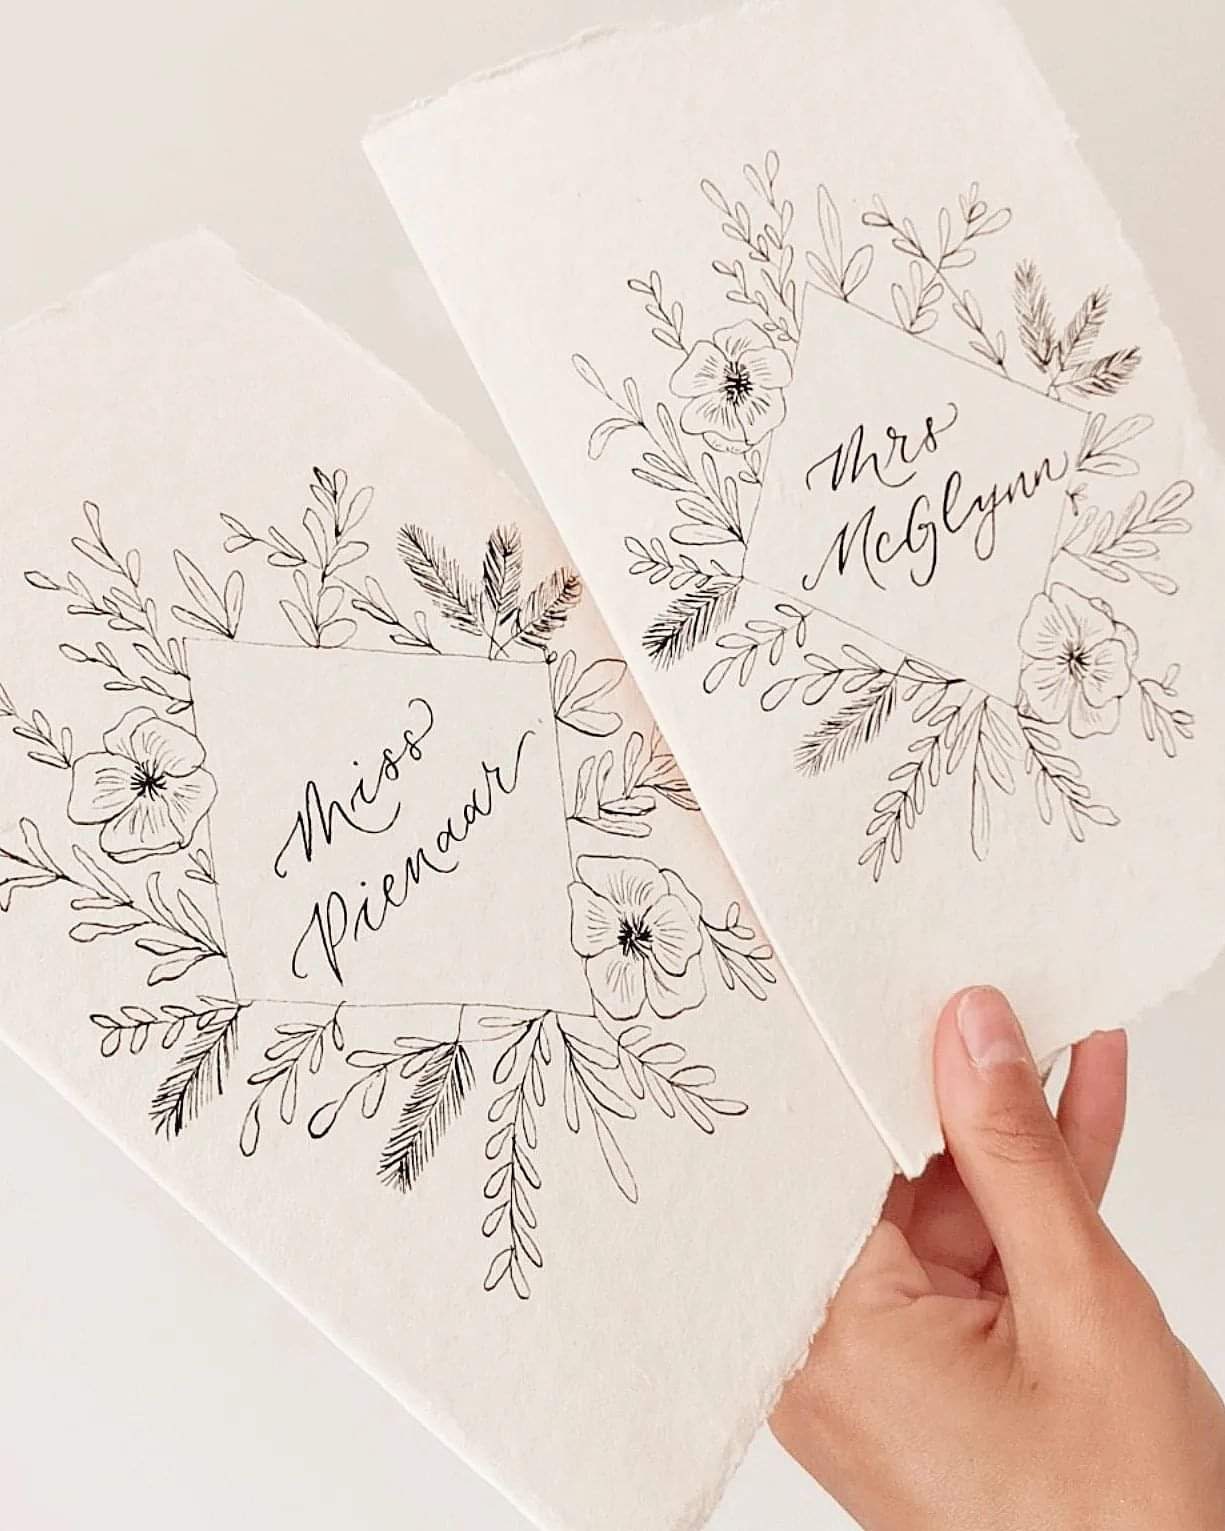 Miss
Pienaar
Mrs
McGlynn